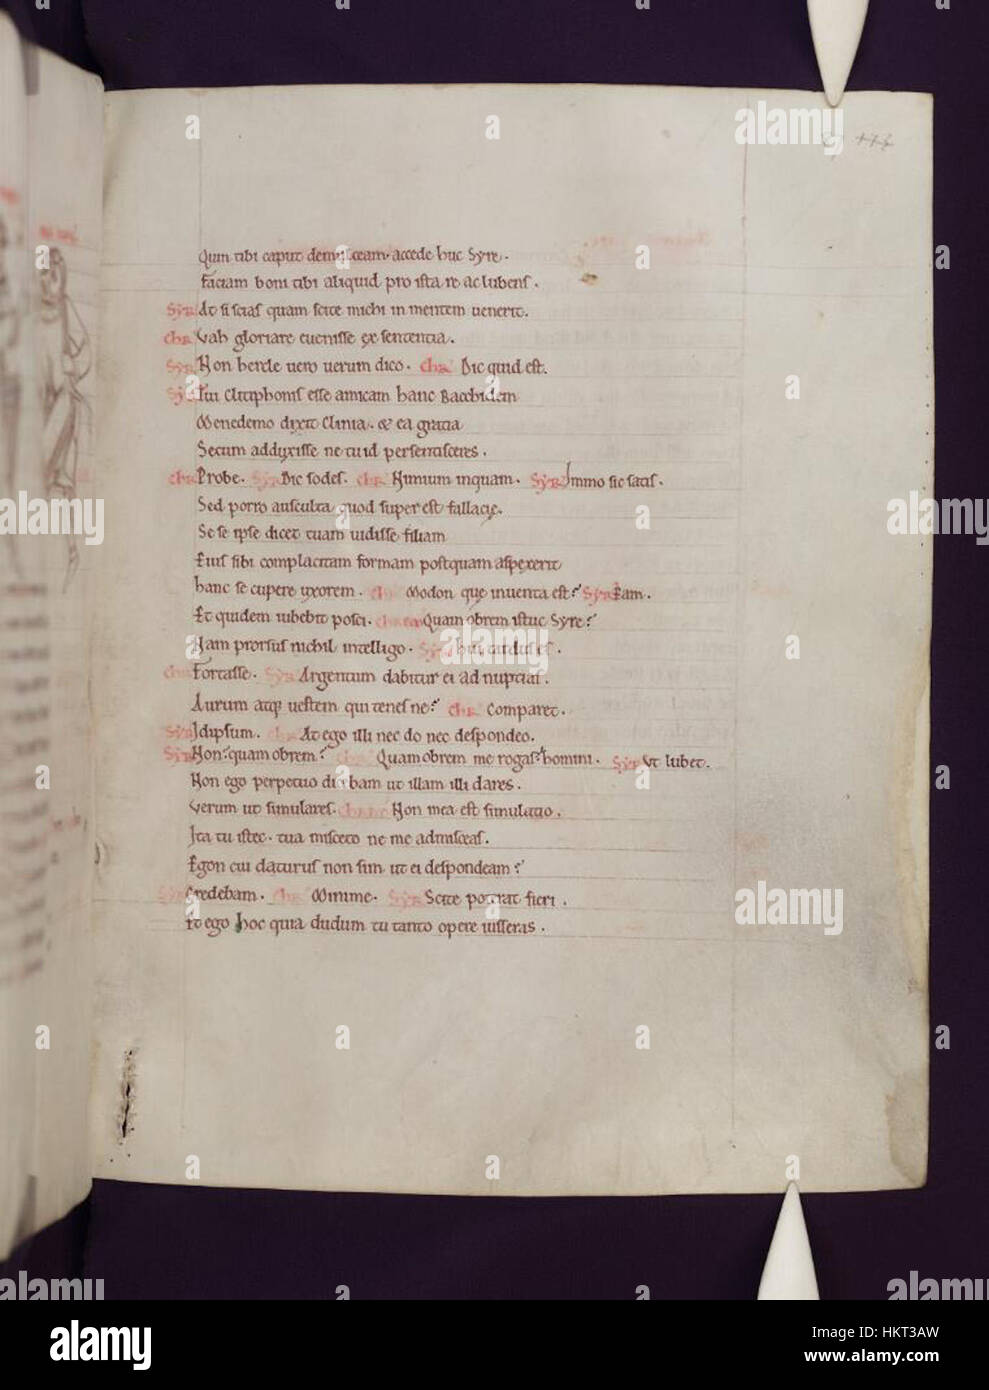 Quin tibi caput demulceam. accede huc Syre.
faciam boni tibi aliquid pro ista re ac lubens.
Syr At si scias quam scite michi in mentem uenerit.
Chr Vah gloriare euenisse ex sententia.
Syr Non hercle uero uerum dico. Chr Dic quid est.
Syr Tui Clitiphonis esse amicam hanc Bacchidem
Menedemo dixit Clinia. & ea gratia
Secum adduxisse ne tu id persentisceres.
Chr Probe. Syr Dic sodes. Chr Nimium inquam. Syr Immo sic satis.
Sed porro ausculta quod super est fallacie.
Se se ipse dicet tuam uidisse filiam
Eius sibi complacitam formam postquam aspexerit
hanc se cupere uxorem. Chr Modon que inuenta est? Syr Eam.
Et quidem iubebit posci. Chr Quam obrem istuc Syre?
Nam prorsus nichil intelligo. Syr hui tardus es.
Chr Fortasse. Syr Argentum dabitur ei ad nuptias.
Aurum atq; uestem qui tenes ne? Chr Comparet.
Syr Id ipsum. Chr At ego illi nec do nec despondeo.
Syr Non? quam obrem? Chr Quam obrem me rogas? homini. Syr Vt lubet.
Non ego perpetuo dicebam ut illam illi dares.
Verum ut simulares. Chr Non mea est simulatio.
Ita tu istec. tua misceto ne me admisceas.
Egon cui daturus non sim ut ei despondeam?
Syr Credebam. Chr Minime. Syr Scite poterat fieri.
Et ego hoc quia dudum tu tanto opere iusseras.
alamy
HKT3AW
www.alamy.com